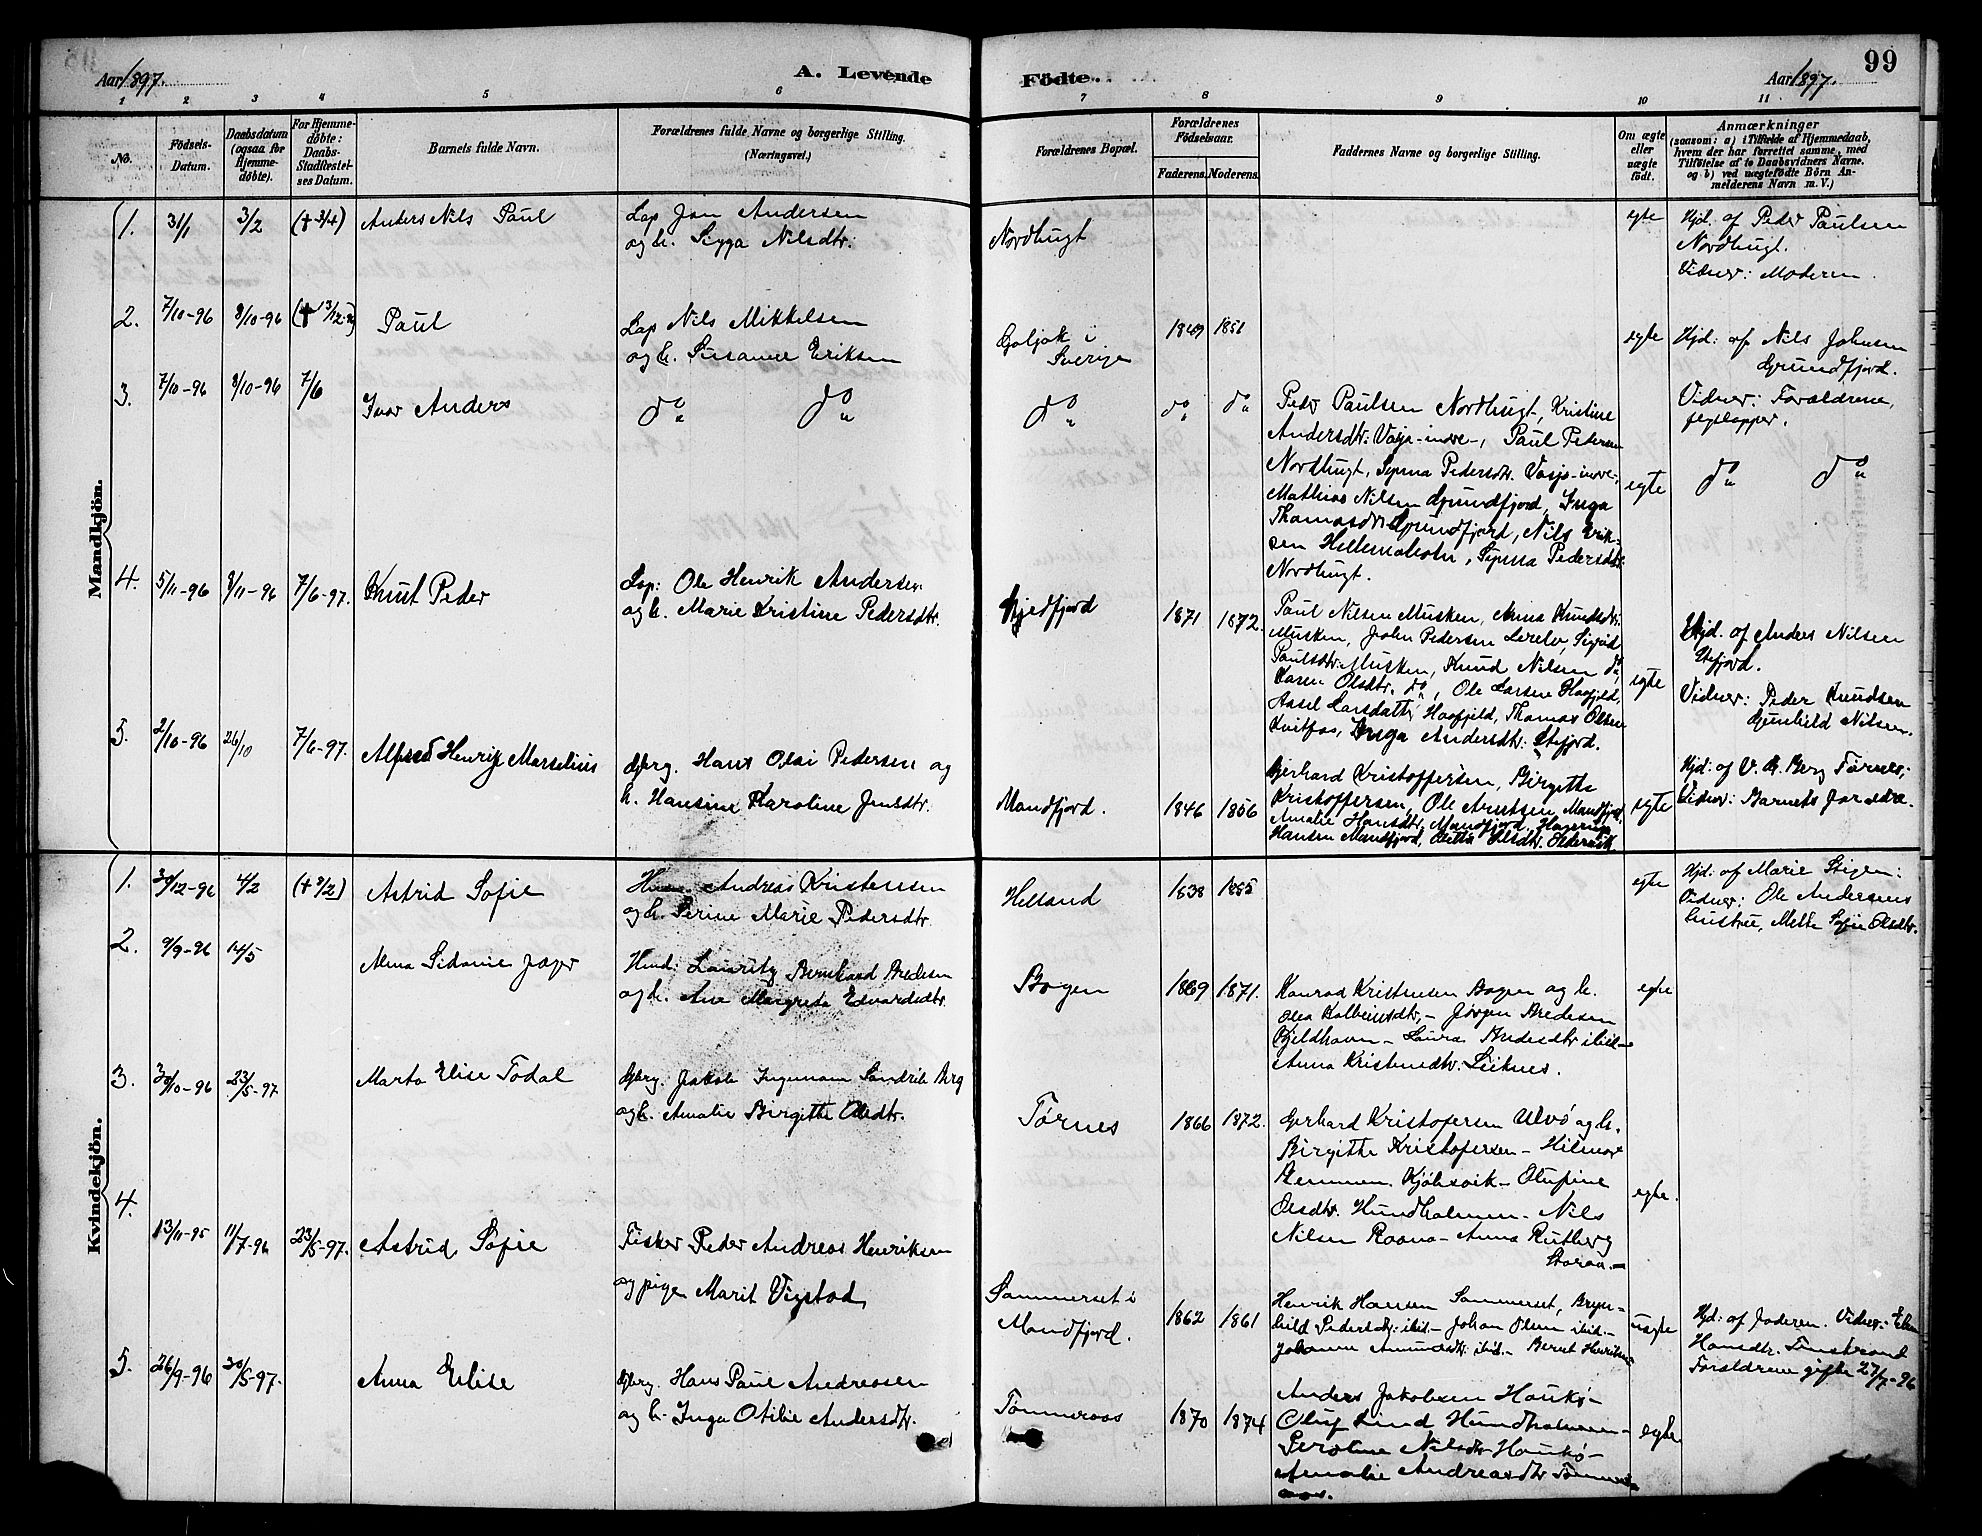 Aar 1897.
A. Levende
Födte.
Aar 1897.
99
1 2 3 4 5 6 7 8 9 10 11
No.
Födsels-
Datum.
Daabsdatum
(ogsaa for
Hjemme-
döbte).
For Hjemme-
döbte:
Daabs-
Stadfæstel-
ses Datum.
Barnets fulde Navn.
Forældrenes fulde Navne og borgerlige Stilling.
(Næringsvei.)
Forældrenes Bopæl.
Forældrenes
Födselsaar.
Faderens. Moderens.
Faddernes Navne og borgerlige Stilling.
Om ægte
eller
uægte
födt.
Anmærkninger
(saasom: a) i Tilfælde af Hjemmedaab,
hvem der har forrettet samme, med
Tilföielse af to Daabsvidners Navne.
og b) ved uægtefödte Börn An-
melderens Navn m. V.)
Mandkjön.
1. 31/1 3/2 (+ 3/4) Anders Nils Paul
Lap Jon Andersen
og h. Sigga Nilsdtr.
Nordbugt
egte
Hjd. af Peder Paulsen
Nordbugt.
Vidner: Moderen.
2. 7/10-96 8/10-96 Paul
Lap Nils Mikkelsen
og h. Susanne Eriksen
i
Sverige
1849 1851
egte
Hjd. af Nils Johnsen
Grundfjord.
Vidner: Forældrene,
3. 7/10-96 8/10-96 7/6 Ivar Anders
do do
do
do do
Peder Paulsen Nordbugt, Kristine
Andersdtr. Vasja-indre-, Paul Pedersen
Nordbugt, Signa Pedersdtr. Vasja-indre,
Mathias Nilsen Grundfjord, Inga
Thomasdtr Grundfjord, Nils Erik-
sen Hellemobotn, Signa Pedersdtr.
Nordbugt.
egte
do do
4. 5/11-96 8/11-96 7/6-97. Knut Peder
Lap: Ole Henrik Andersen
og h. Marie Kristine Pedersdtr.
1871 1872.
Paul Nilsen Musken, Anna Knudsdtr.
Musken, John Pedersen Sigrid
Paulsdtr. Musken, Knud Nilsen do,
Karen Olsdtr. do, Ole Larsen
Larsdatter Thomas Olsen
Inga Andersdtr: Efjord.
egte
Hjd. af Anders Nilsen
Efjord.
Vidner: Peder Knudsen
Gunhild Nilsen.
5. 2/10-96 26/10 7/6-97. Alfred Henrik Marselius
Gbrg. Hans Olai Pedersen og
h. Hansine Karoline Jensdtr.
Mandfjord.
1846 1856
Gerhard Kristoffersen, Birgitte
Kristoffersen, Ole Arntsen Mandfjord,
Amalie Hansdtr. Mandfjord,
Hansen Mandfjord, Olsdtr.
egte
Hjd: af V. A. Berg Tørnes;
Vidner: Barnets Forældre.
Kvindekjön.
1. 30/12-96 4/2 (+ 8/2) Astrid Sofie
Andreas Kristensen
og h. Serine Marie Pedersdtr.
Helland
1838 1855
egte
Hjd: af Marie Stigen:
Vidner: Ole Andersens
hustru, Mette Sofie Olsdtr.
2. 9/9-96 14/5
Alma Sidanie Jæger
Hmd: Lauritz Bernhard Bredesen
og h. Ane Margreta Edvardsdtr.
Bogen
1869 1871.
Konrad Kristensen Bogen og h.
Olea Kolbeinsdtr,- Jørgen Bredesen
Kjeldhavn- Laura ibid-
Anna Kristensdtr. Liknes.
egte
3. 30/10-96 23/5-97. Marta Elise Todal
Gbrg. Jakob Ingeman Berg
og h. Amalie Birgitte Olsdtr.
Tørnes
1866 1872.
Gerhard Kristofersen Ulvø og h.
Birgitte Kristofersen- Hilmar
Kjøbsvik- Olufine
Olsdtr. Hundholmen- Nils
Nilsen - Anna Rutberg
Storaa.-
egte.
4. 13/11-95 11/7-96 23/5-97. Astrid Sofie
Fisker Peder Andreas Henriksen
og pige Marit Vigstad
Sommerset i
Mandfjord.
1862 1861
Henrik Hansen Sommerset, Bryn-
hild Pedersdtr: ibid- Johan Olsen ibid.-
Johanne Amundsdtr. ibid.- Bernt Henriksen
uægte
Hjd: af Faderen. Vidner:
Hansdtr. Finstrand
Forældrene gifte 27/7-96
5. 26/9-96 30/5-97. Anna Elise
Gbrg. Hans Paul Andreasen
og h. Inga Otilie Andersdtr.
Tømmeraas
1870 1874
Anders Jakobsen Haukø-
Oluf Lind Hundholmen-
Peroline Nilsdtr Haukø-
Amalie Andreasdtr Tømmer-
aas.
egte